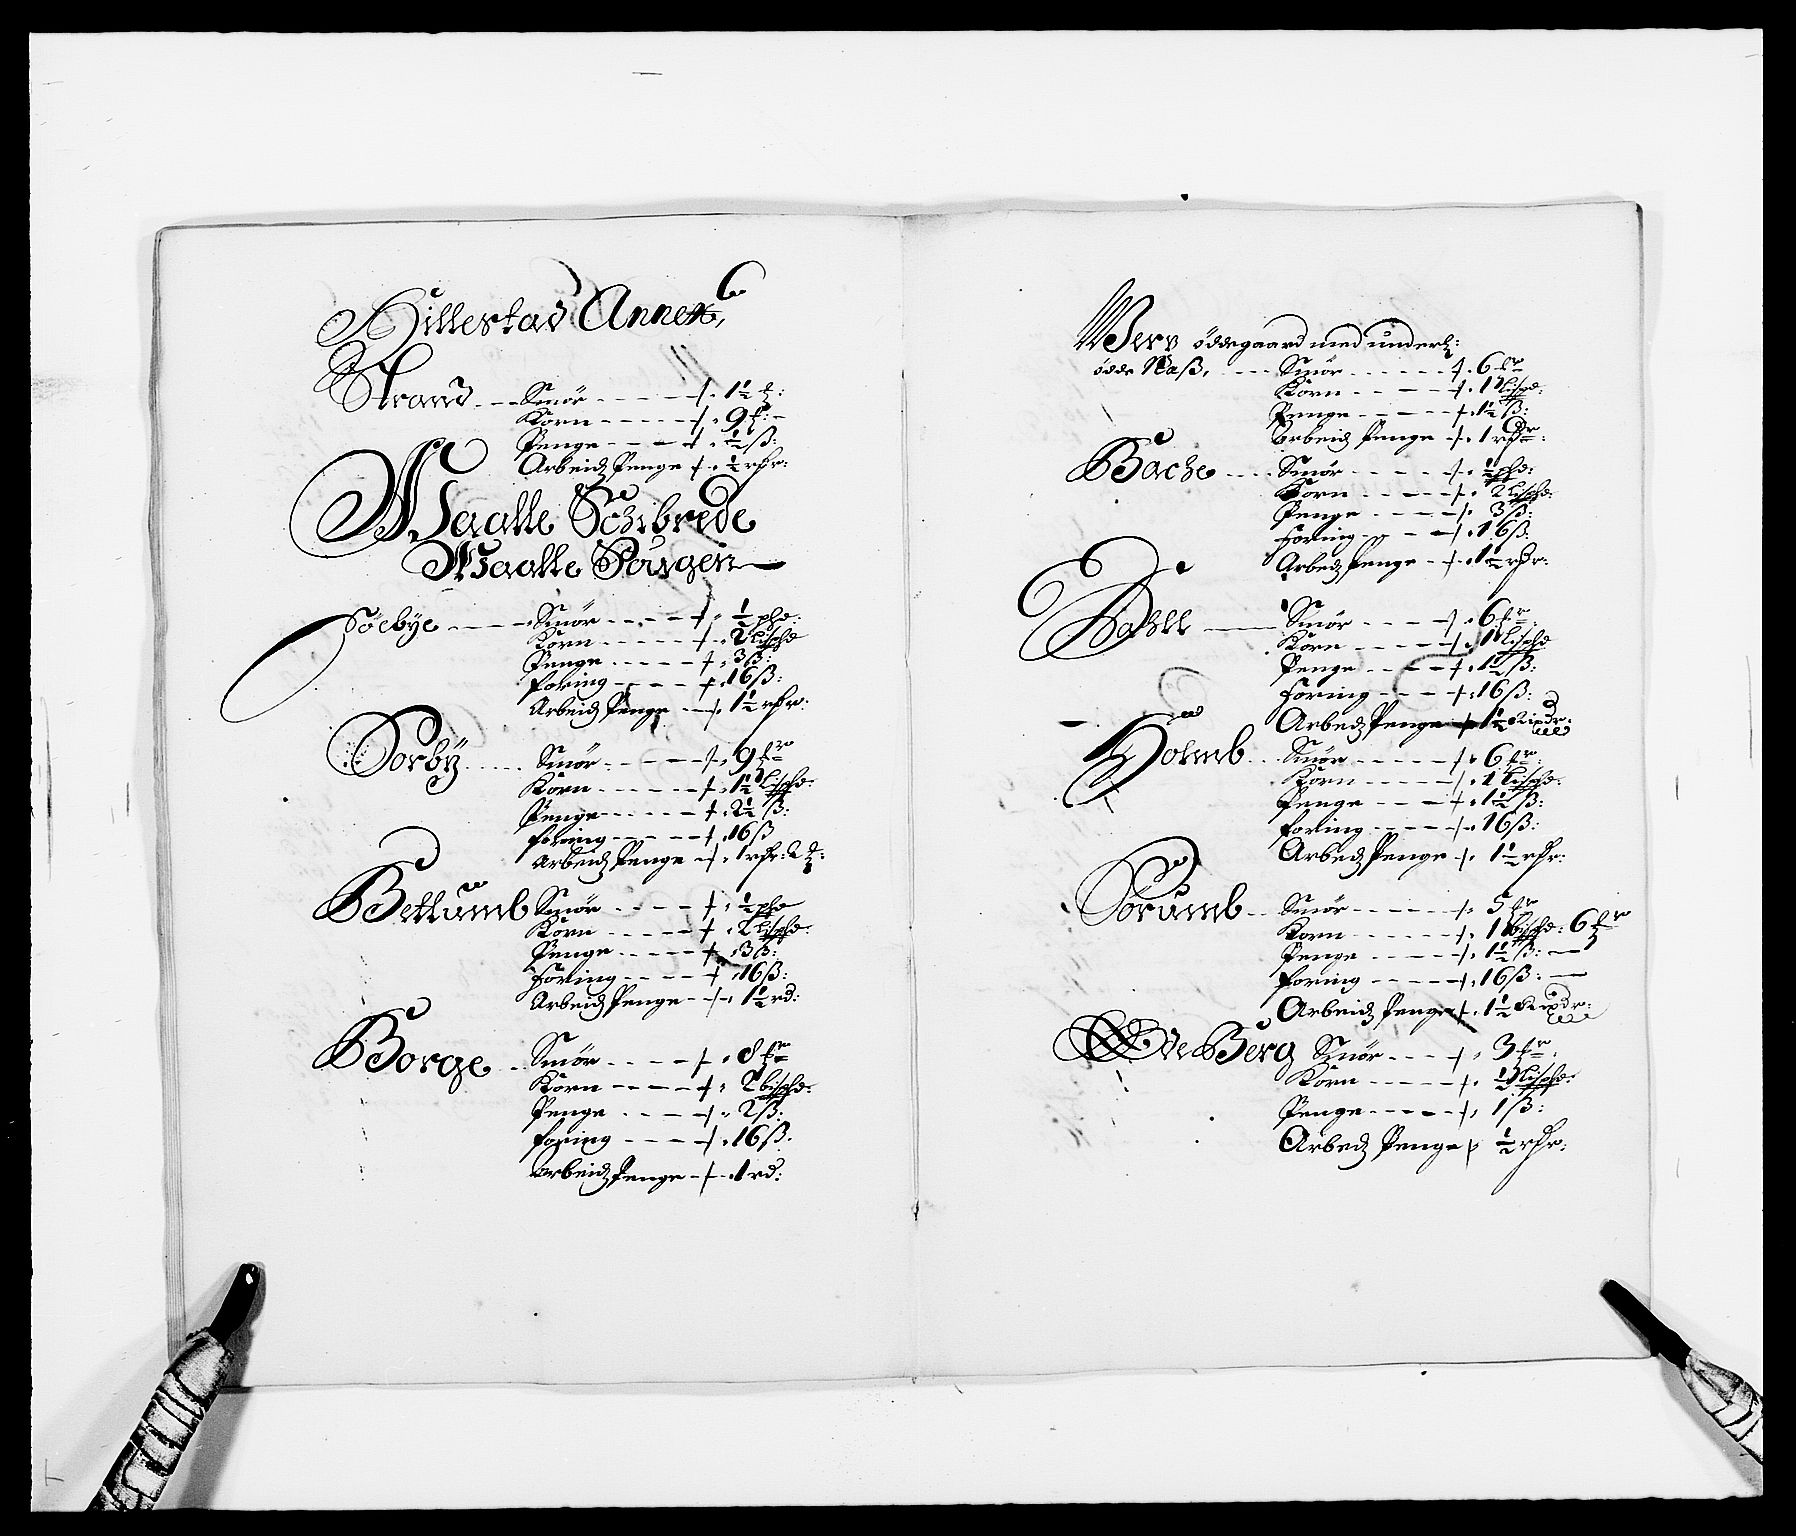 Hillestad Annex,
Strand - - Smör - - - - - 1½ ℔:
Korn - - - - - 9 ℔: -
Penge - - - - ½ ß:
Arbeidz Penge - ½ rdr:
Waalle Schibrede
Waalle Sougen
Söebÿe - - - Smör - - - - ½ phd:
Korn - - - - - 2 Lispd
Penge - - - - - 3 ß:
foring - - - - - 16 ß:
Arbeidz Penge - - 1½ rdr:
Sorbÿ - - - Smör - - - - - 9 ℔r
Korn - - - - - 1½ Lispd:
Penge - - - - - 2½ ß:
foring - - - - - 16 ß
Arbeidz Penge - 1 rdr: 2
Bettumb Smör - - - - ½ phd
Korn - - - - - 2 Lispd:
Penge - - - - - 3 ß:
Foring - - - - 16 ß:
Arbeidz Penge - - 1½ rd:
Borge - - Smör - - - - 8 ℔r
Korn - - - - - 2 Lispd:
Penge - - - - 2 ß:
foring - - - - 16 ß.
Arbeidz Penge - - 1 rd:
Werv öddegaard med underl:
ödde Naß, - - - Smör - - - - - - 6 ℔r
Korn - - - - 1 Lispd:
Penge - - - - 1½ ß:
Arbeidz Penge - 1 rdr:
Bache - - - Smör - - - - - ½ phd:
Korn - - - - - 2 Lispd:
Penge - - - - - 3 ß:
Foring - - - - 16 ß:
Arbedz Penge - - 1½ rdr:
Dahll - - - Smör - - - - 6 ℔r:
Korn - - - - - 1 Lispd
Penge - - - - 1½ ß:
Foring - - - - 16 ß:
Arbedz Penge - 1½ Rixdr:
Holmb - - Smör - - - - - 6 ℔r:
Korn - - - - - 1 Lispd:
Penge - - - - 1½ ß:
foring - - - - - 16 ß:
Arbedz Penge - 1½ rdr:
Sorumb - - Smör - - - - - 5 ℔r
Korn - - - - - - 1 Lispd: 6 ℔r
Penge - - - - - 1½ ß: —
foring - - - - - 16 ß: —
Arbeidz Penge - 1½ Rixdr:
Ove Berg Smör - - - - 3 ℔r:
Korn - - - - - ½ Lispd:
Penge - - - - - 1 ß:
Arbedz Penge ½ rdr: